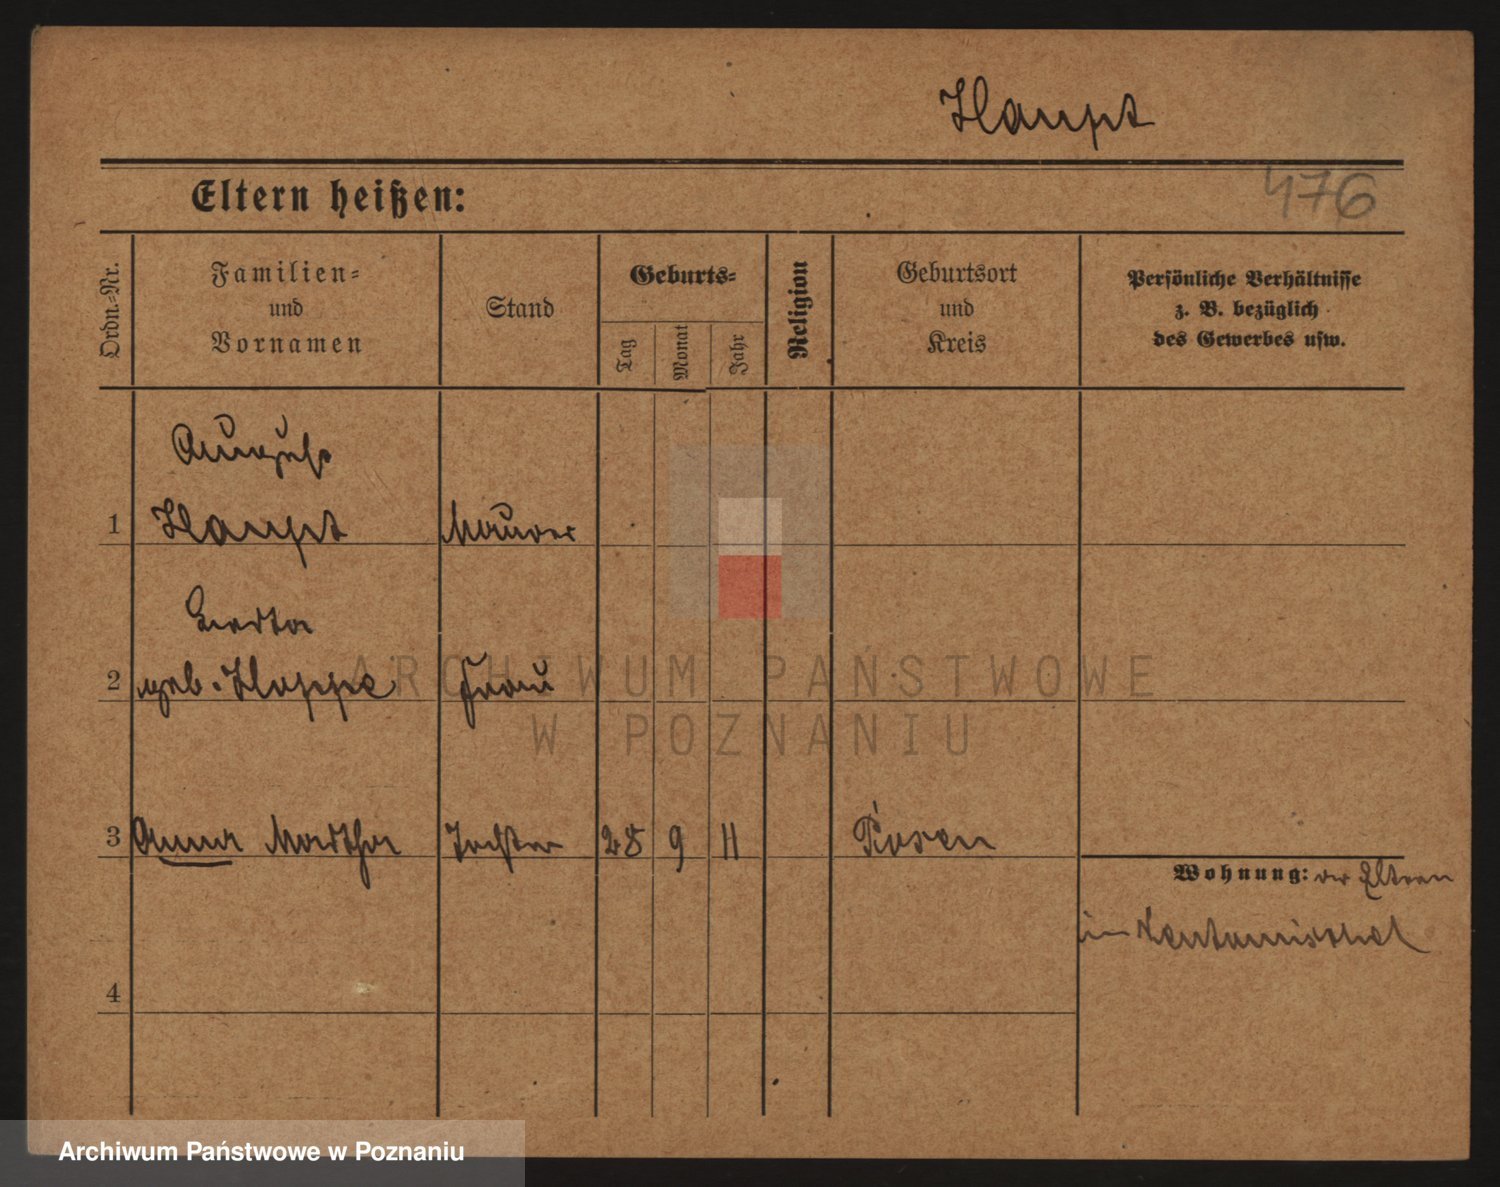 Haupt
Eltern heißen:
476
Ordn.-Nr.
Familien-
und
Vornamen
Stand
Geburts-
Tag
Monat
Jahr
Religion
Geburtsort
und
Kreis
Persönliche Verhältnisse
z. B. bezüglich
des Gewerbes usw.
August
1 Haupt Maurer
2 geb. Hoppe Frau
ARCHIWUM PAŃSTWOWE
W POZNANIU
3 Anna Martha Tochter 28 9 11 Posen
Wohnung: der Eltern
in
4
Archiwum Państwowe w Poznaniu